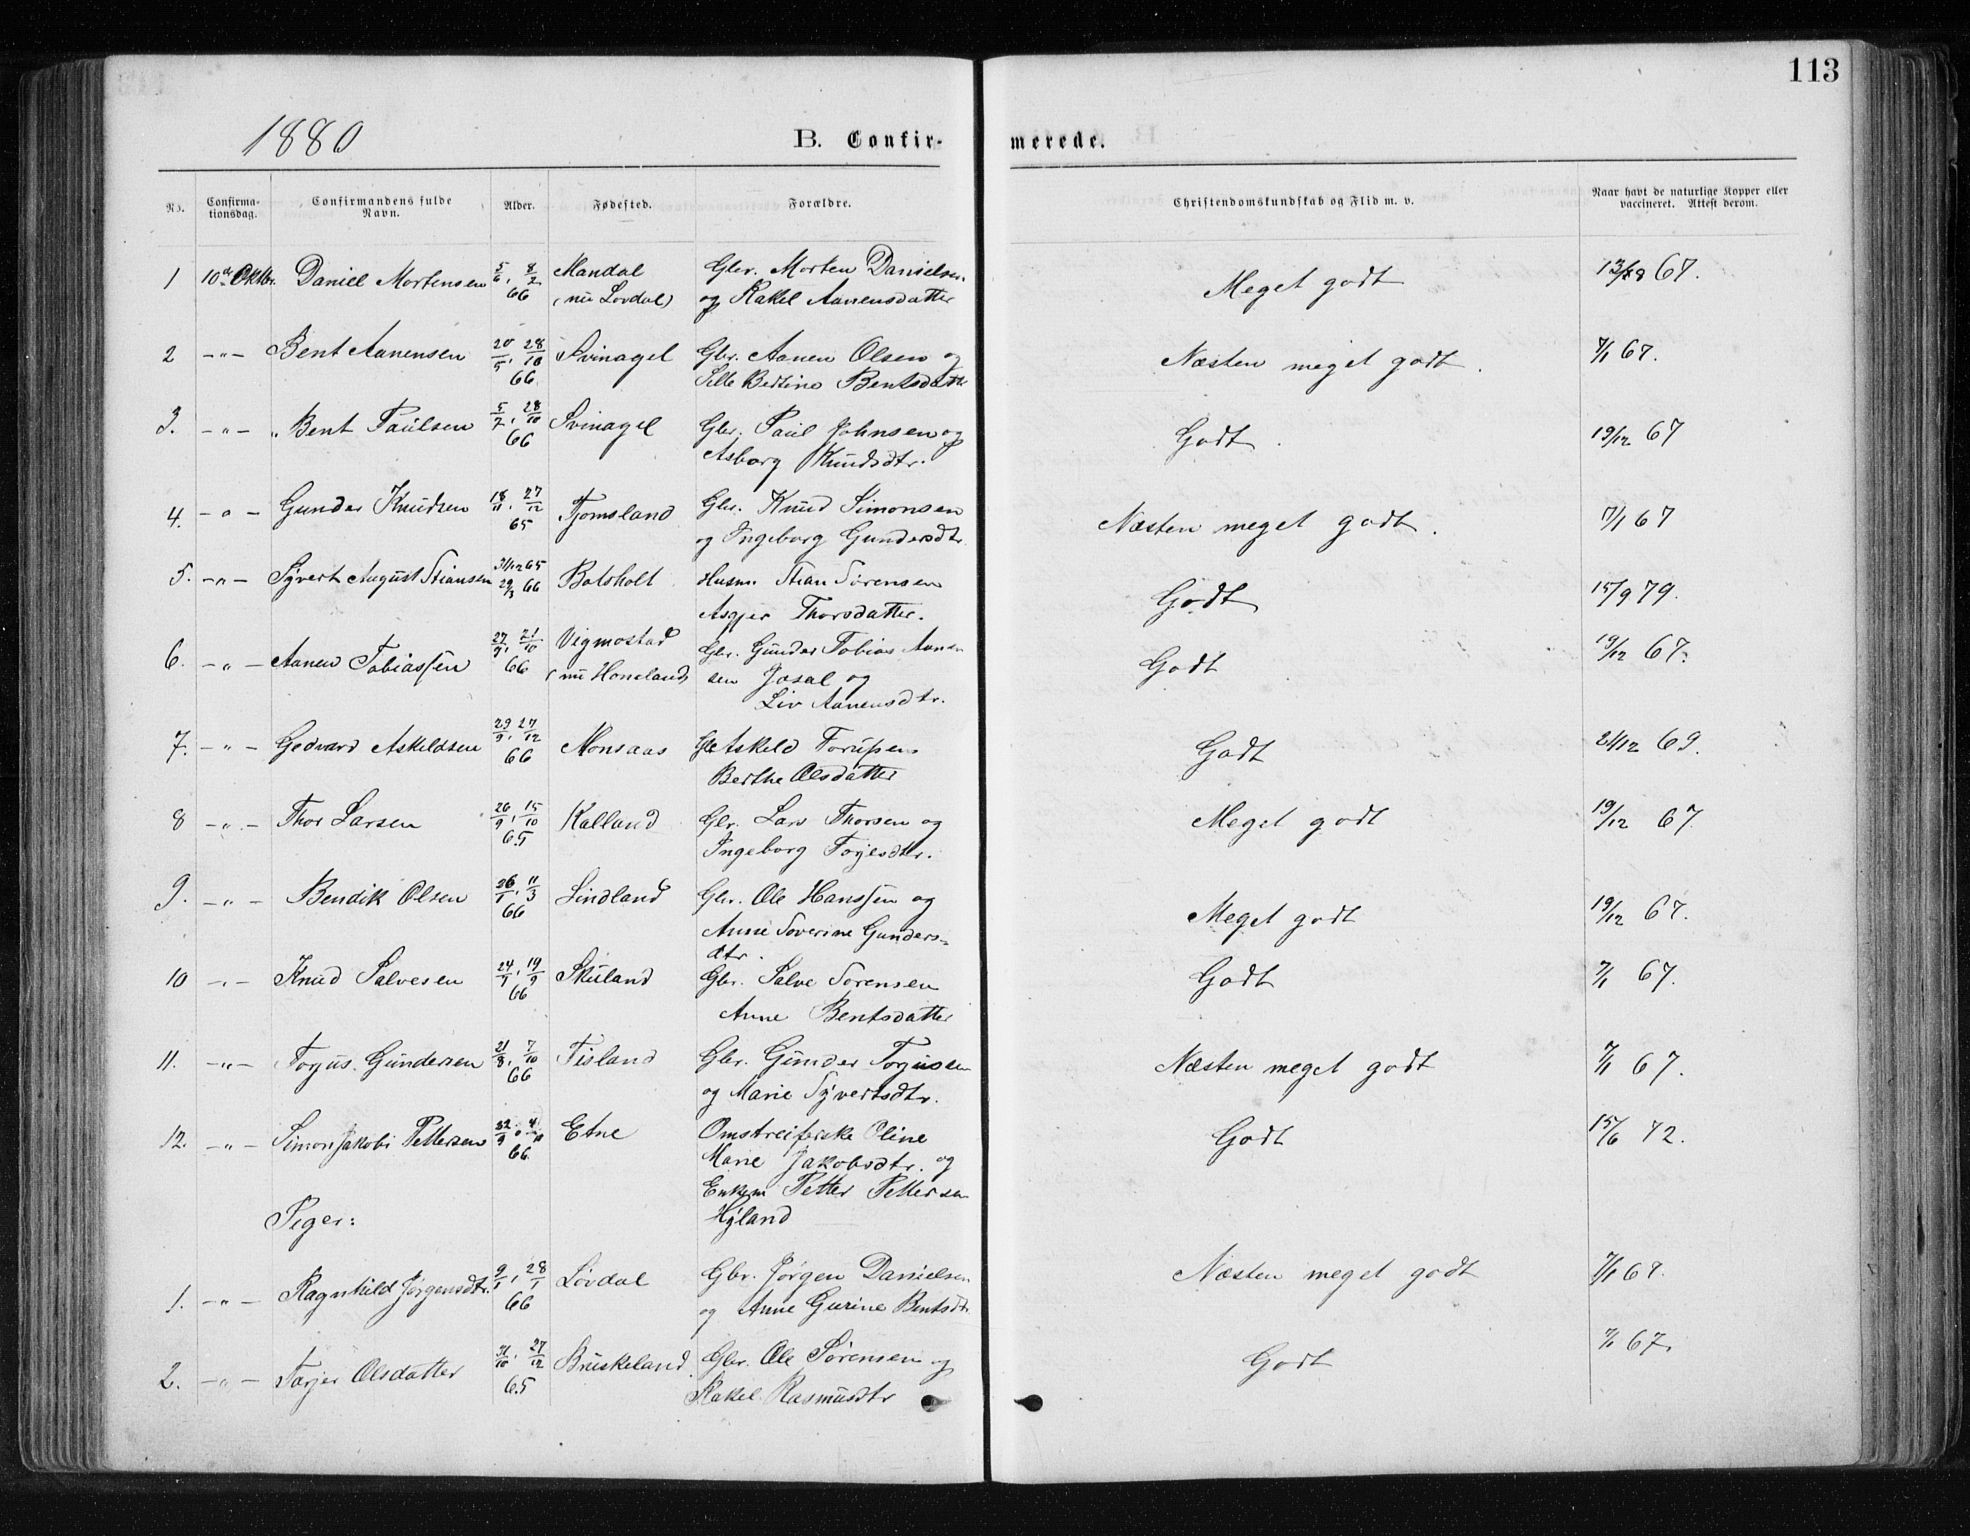 113
1880
B. Confir- merede.
No. Confirma- tionsdag. Confirmandens fulde Navn. Alder. Fødested. Forældre. Christendomskundskab og Flid m. v. Naar havt de naturlige Kopper eller vaccineret. Attest derom.
1 10de Oktbr. Daniel Mortensen 5/6, 8/2 66 Mandal Gbr. Morten Danielsen Meget godt 67.
(nu Lovdal) og Rakel Aanensdatter
2 -"- Bent Aanensen 20/5, 28/10 66. Svinagel Gbr. Aanen Olsen og Næsten meget godt. 7/1 67.
Bertine Bentsdattr
3. -"- Bent Paulsen 5/7, 28/10 66 Svinagel Gbr. Paul Johnsen og Godt. 19/12 67
Asborg Knudsdtr.
4. -"- Gunder Knudsen 18/11, 27/12 65 Tjomsland Gbr. Knud Simonsen Næsten meget godt. 7/1 67
og Ingeborg Gundersdtr.
5. -"- Syvert August Stiansen 31/12 65 29/3 66 Botsholt Husm Stian Sørensen Godt 15/9 79.
Asgjer Thorsdatter.
6. -"- Aanen Tobiassen 27/9, 21/10 66 Vigmostad Gbr. Gunder Tobias Aanen Godt 19/12 67.
(nu Honeland) sen Josal og
Liv Aanensdtr.
7. -"- Gedvard Askildsen 29/9, 27/12 66 Monsaas Gbr Askeld Berthe Olsdatter Godt 21/12 69.
8 -"- Thor Larsen 26/9, 15/10 65 Kalland Gbr. Lars Thorsen og Meget godt 19/12 67.
Ingeborg Torjesdtr.
9. -"- Bendik Olsen 26/1, 11/3 66 Lindland Gbr. Ole Hanssen og Meget godt 19/12 67.
Anne Severine Gunders-
dtr.
10 -"- Knud Salvesen 24/7, 19/9 66 Skuland Gbr. Salve Sørensen Godt 7/1 67.
Anne Bentsdatter
11. -"- Torjus Gundersen 21/8, 7/10 66 Tisland Gbr. Gunder Torjusen Næsten meget godt 7/1 67.
og Marie Syvertsdtr.
12. -"- Simon Jakobi Pettersen 66. Etne Omstreiferske Oline Godt 15/6 72.
Marie Jakobsdtr. og
Enkem Petter Pettersen
Hyland
Piger:
1. -"- Ragnhild Jørgensdtr. 9/1, 28/1 66 Lovdal Gbr. Jørgen Danielsen Næsten meget godt 7/1 67.
og Anne Gurine Bentsdtr
2. -"- Torjer Olsdatter 31/10, 27/12 65 Bruskeland Gbr. Ole Sørensen og Godt 7/1 67.
Rakel Rasmusdtr